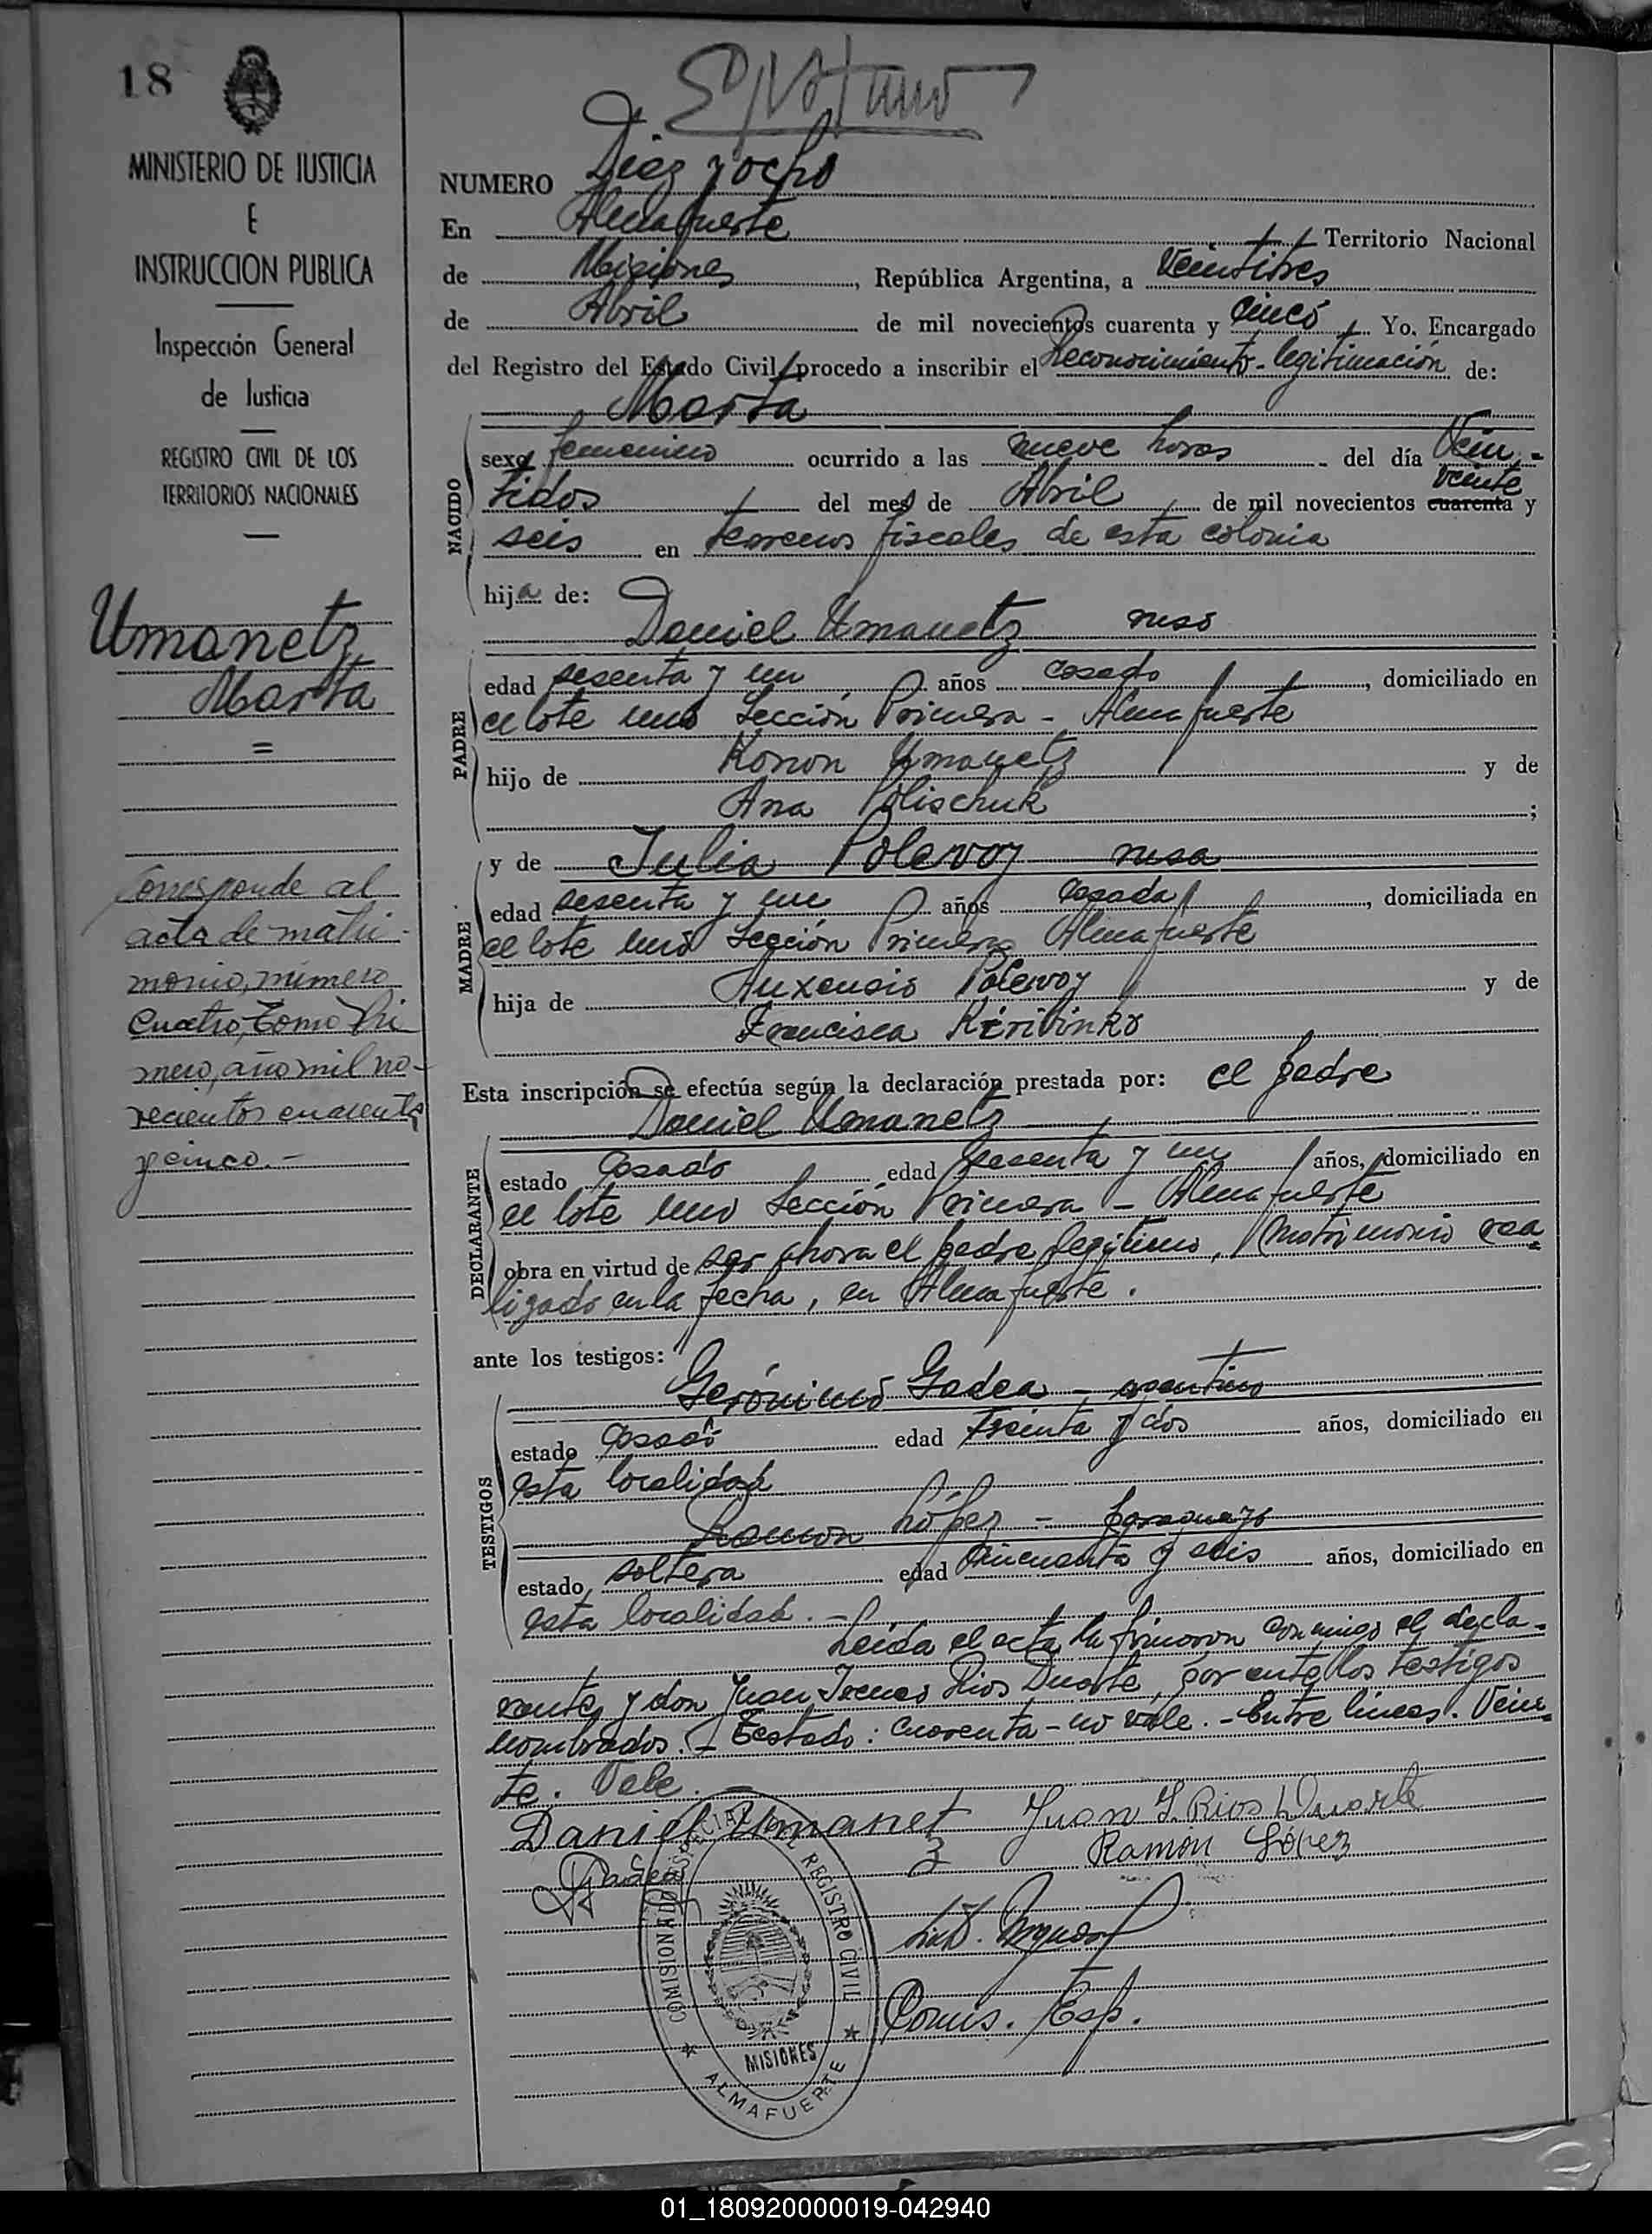 18
MINISTERIO DE JUSTICIA
E
INSTRUCCION PUBLICA
Inspección General
de Justicia
REGISTRO CIVIL DE LOS
TERRITORIOS NACIONALES
Umanetz
Marta
=
Corresponde al
acta de matri-
monio, número
Cuatro, Tomo Pri
mero, año mil no-
vecientos cuarenta
y cinco.-
NUMERO Diez y ocho
En Almafuerte Territorio Nacional
de Misiones, República Argentina, a veintitres
de Abril de mil novecientos cuarenta y cinco. Yo. Encargado
del Registro del Estado Civil, procedo a inscribir el Reconocimiento-legitimación de:
Marta
NACIDO
sexo femenino ocurrido a las nueve horas del día Vein-
tidos del mes de Abril de mil novecientos cuarenta veinte y
seis en terrenos fiscales de esta colonia
hija de:
Daniel Umanetz ruso
PADRE
edad sesenta y un años casado, domiciliado en
el lote uno Sección Primera - Almafuerte
hijo de Konon Umanetz y de
Ana Polischuk;
y de Julia Polevoy rusa
MADRE
edad sesenta y un años casada, domiciliada en
el lote uno Sección Primera Almafuerte
hija de Auxencio Polevoy y de
Francisca
Esta inscripción se efectúa según la declaración prestada por: el padre
Daniel Umanetz
DECLARANTE
estado casado edad sesenta y un años, domiciliado en
el lote uno Sección Primera - Almafuerte
obra en virtud de ser ahora el padre legítimo, Matrimonio rea-
lizado en la fecha, en Almafuerte.
ante los testigos:
Gerónimo Gadea - argentino
TESTIGOS
estado casado edad treinta y dos años, domiciliado en
esta localidad
Ramón López - paraguayo
estado soltero edad cincuenta y seis años, domiciliado en
esta localidad.-
Leída el acta la firmaron conmigo el decla-
rante, y don Juan Rios Duarte, por ante los testigos
nombrados.- Testado: cuarenta - no vale.- Entre líneas. Vein-
te. Vale.-
Daniel Umanet Juan I. Rios Duarte
z Ramón López
Gadea
Comis. Esp.
COMISION AD ESPECIAL DEL REGISTRO CIVIL
MISIONES
ALMAFUERTE
01_180920000019-042940